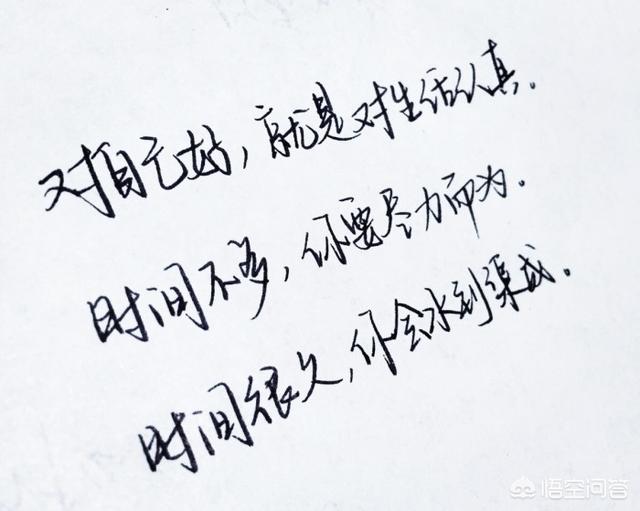 对自己好，就是对生活认真.
时间不多，你要尽力而为.
时间很久，你会水到渠成.
悟空问答